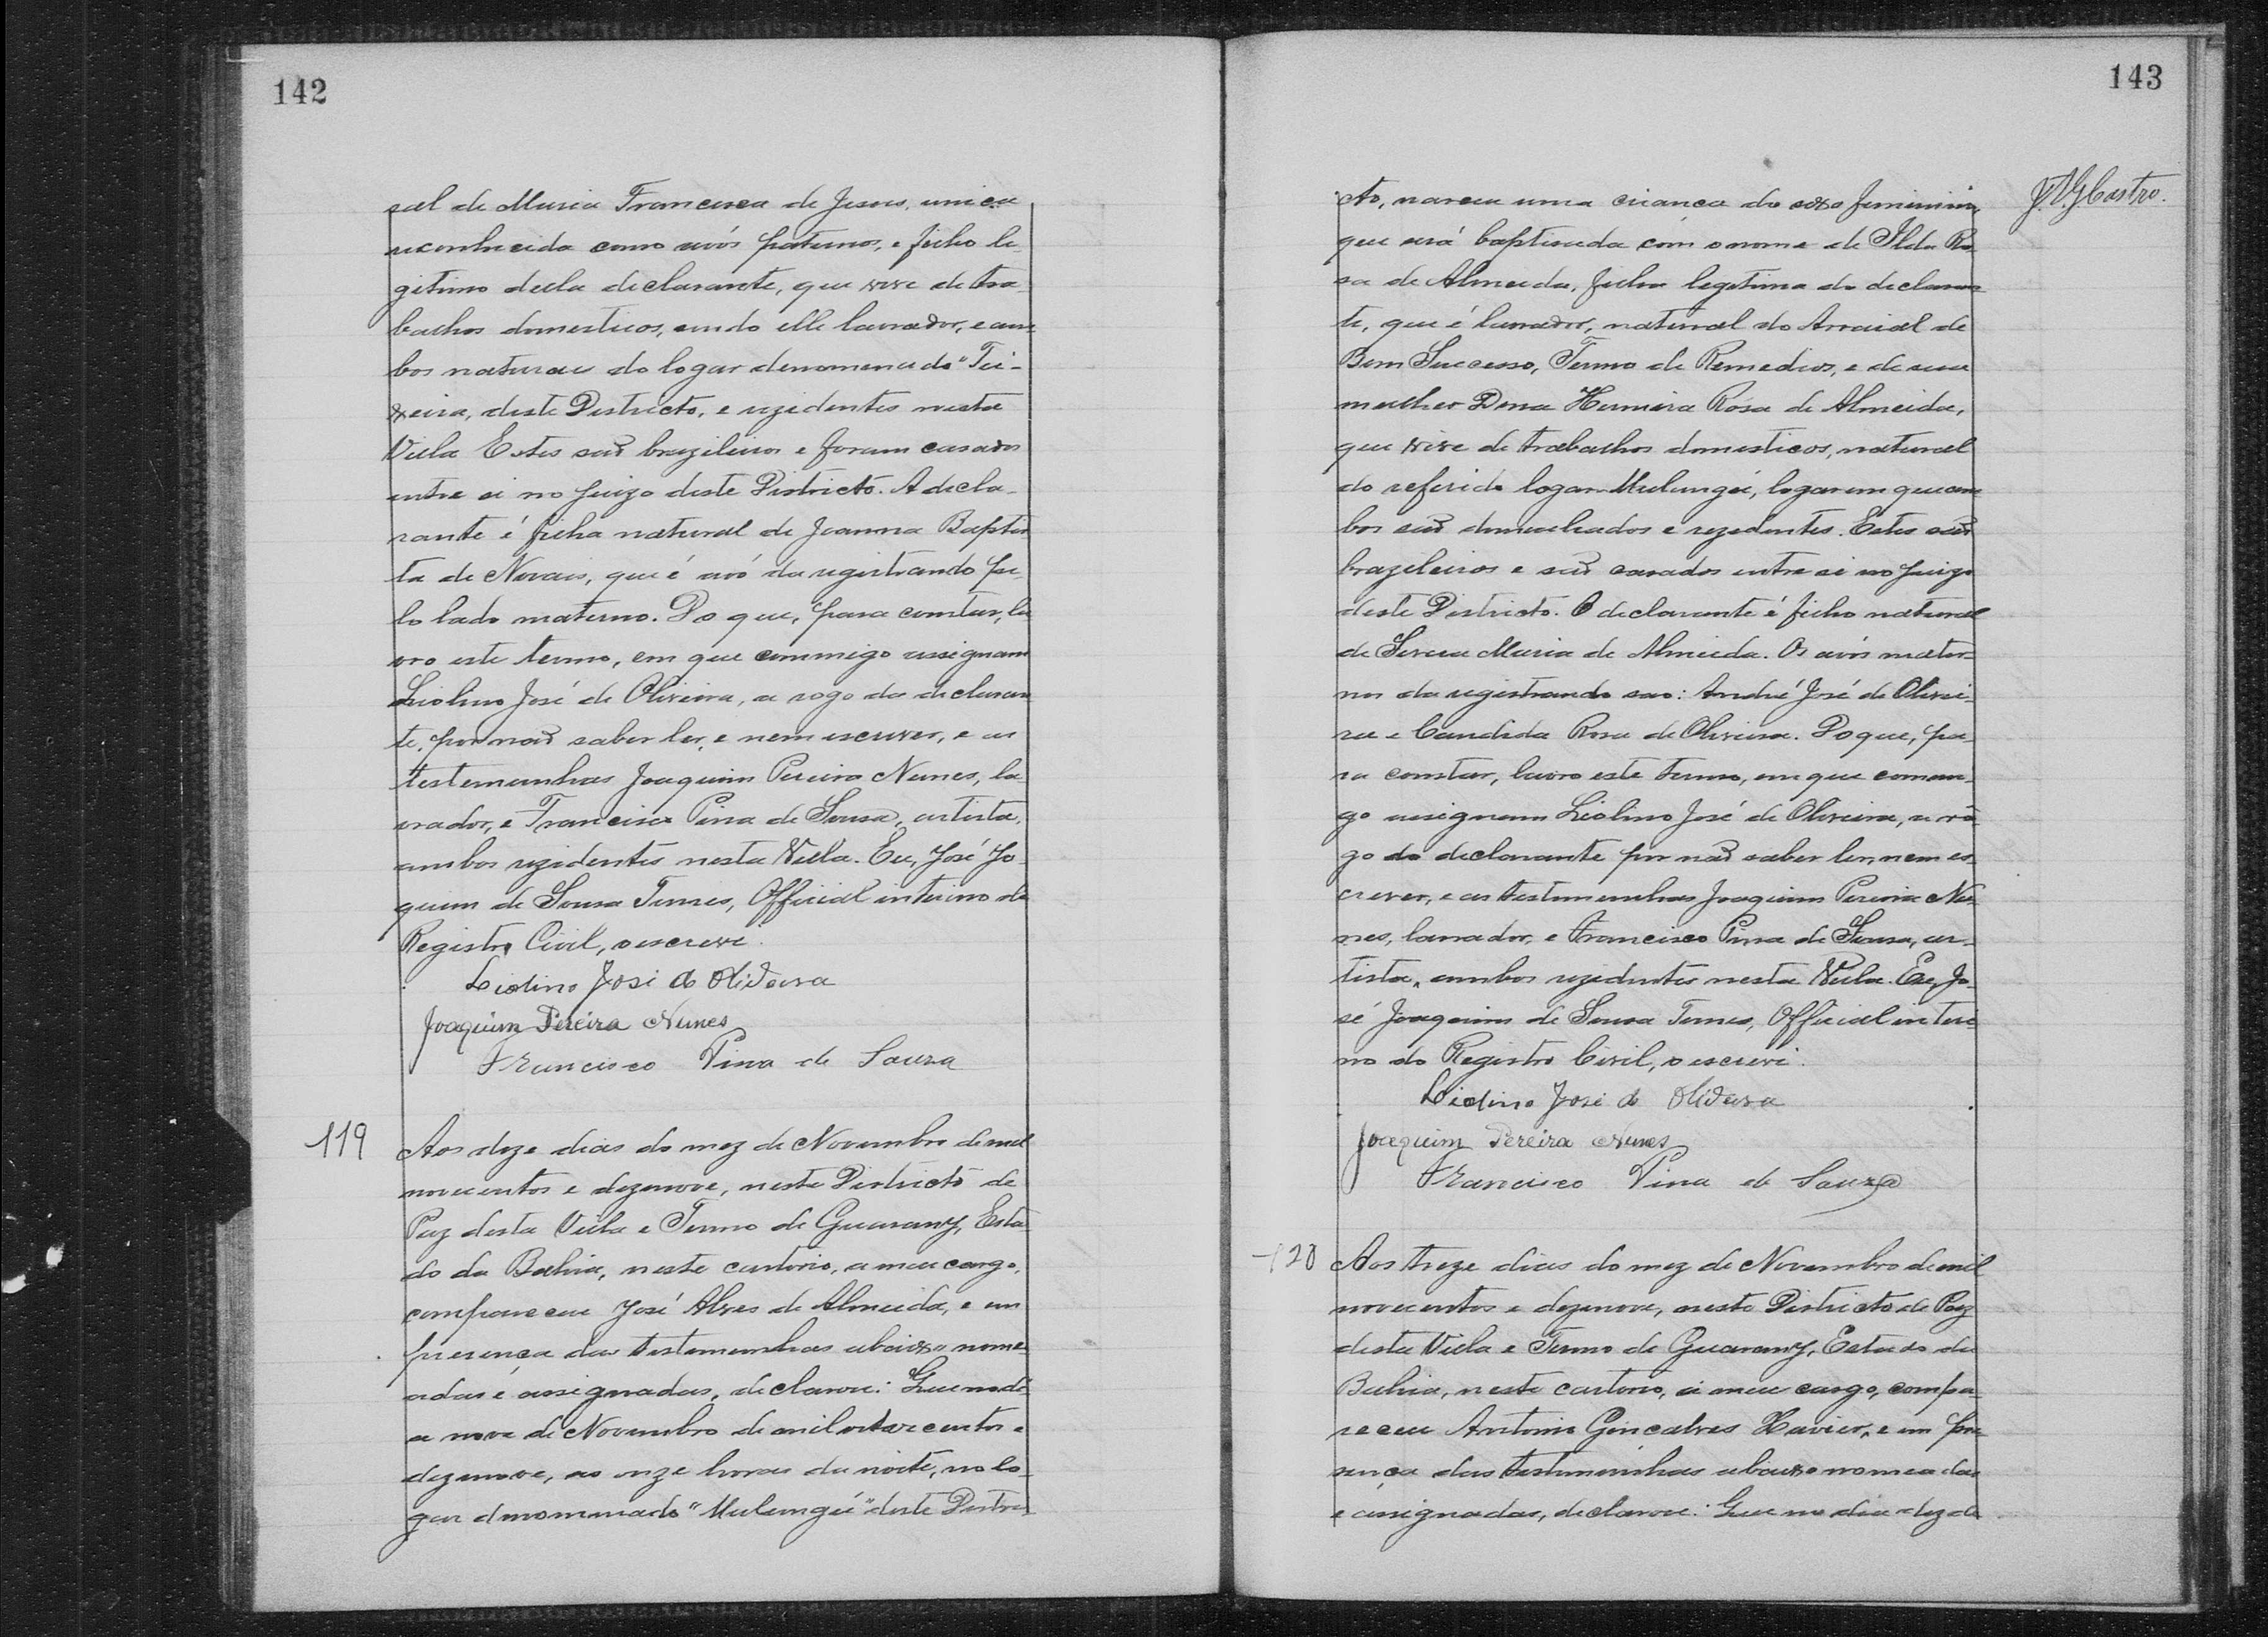 142
ral de Maria Francisca de Jesus, unica
reconhecida como avós paternos, e filho le-
gitimo della declarante, que vive de tra-
balhos domesticos, sendo elle lavrador, e am-
bos naturaes do logar denomenado "Tei-
xeira, deste Districto, e rezidentes nesta
Villa Estes são brazileiros e foram casados
entre si no Juizo deste Districto. A decla-
rante é filha natural de Joanna Baptis-
ta de Novais, que é avó do registrando pe-
lo lado materno. Do que, para constar, la-
vro este termo, em que commigo assignam
Liolino José de Oliveira, a rogo da declaran-
te, por não saber ler, e nem escrever, e as
testemunhas Joaquim Pereira Nunes, la-
vrador, e Francisco Pina de Sousa, artista,
ambos rezidentes nesta Villa. Eu, José Jo-
quim de Sousa Torres, Official interino do
Registro Civil, o escrevi.
Liolino José de Oliveira
Joaquim Pereira Nunes
Francisco Pina de Souza
119
Aos doze dias do mez de Novembro de mil
novecentos e dezenove, neste Districto de
Paz desta Villa e Termo de Guarany, Esta-
do da Bahia, neste cartorio, a meu cargo,
compareceu José Alves de Almeida, e em
presença das testemunhas abaixo nome-
adas e assignadas, declarou: Que no di-
a nove de Novembro de mil oitocentos e
dezenove, as onze horas da noite, no lo-
gar denominado "Mulungú" deste Distric-
143
J. V. G. Castro.
cto, nasceu uma criança do sexo feminino,
que será baptisada com o nome de Ilda Ro-
sa de Almeida, filha legitima do declaran-
te, que é lavrador, natural do Arraial de
Bom Successo, Termo de Remedios, e de sua
mulher Dona Hermira Rosa de Almeida,
que vive de trabalhos domesticos, natural
do referido logar Mulungú, logar em que am-
bos são domiciliados e rezidentes. Estes são
brazileiros e são casados entre si no Juizo
deste Districto. O declarante é filho natural
de Maria de Almeida. Os avós mater-
nos da registrando sao: André José de Olivei-
ra e Candida Rosa de Oliveira. Do que, pa-
ra constar, lavro este termo, em que commi-
go assignam Liolino José de Oliveira, a ro-
go do declarante por não saber ler, nem es-
crever, e as testemunhas Joaquim Pereira Nu-
nes, lavrador, e Francisco Pina de Sousa, ar-
tista, ambos rezidentes nesta Villa. Eu, Jo-
sé Joaquim de Sousa Torres, Official interi-
no do Registro Civil, o escrevi.
Liolino José de Oliveira
Joaquim Pereira Nunes
Francisco Pina de Souza
120
Aos treze dias do mez de Novembro de mil
novecentos e dezenove, neste Districto de Paz
desta Villa e Termo de Guarany, Estado da
Bahia, neste cartorio, a meu cargo, compa-
receu Antonio Gonçalves Xavier, e em pre-
sença das testemunhas abaixo nomeadas
e assignadas, declarou: Que no dia dez de